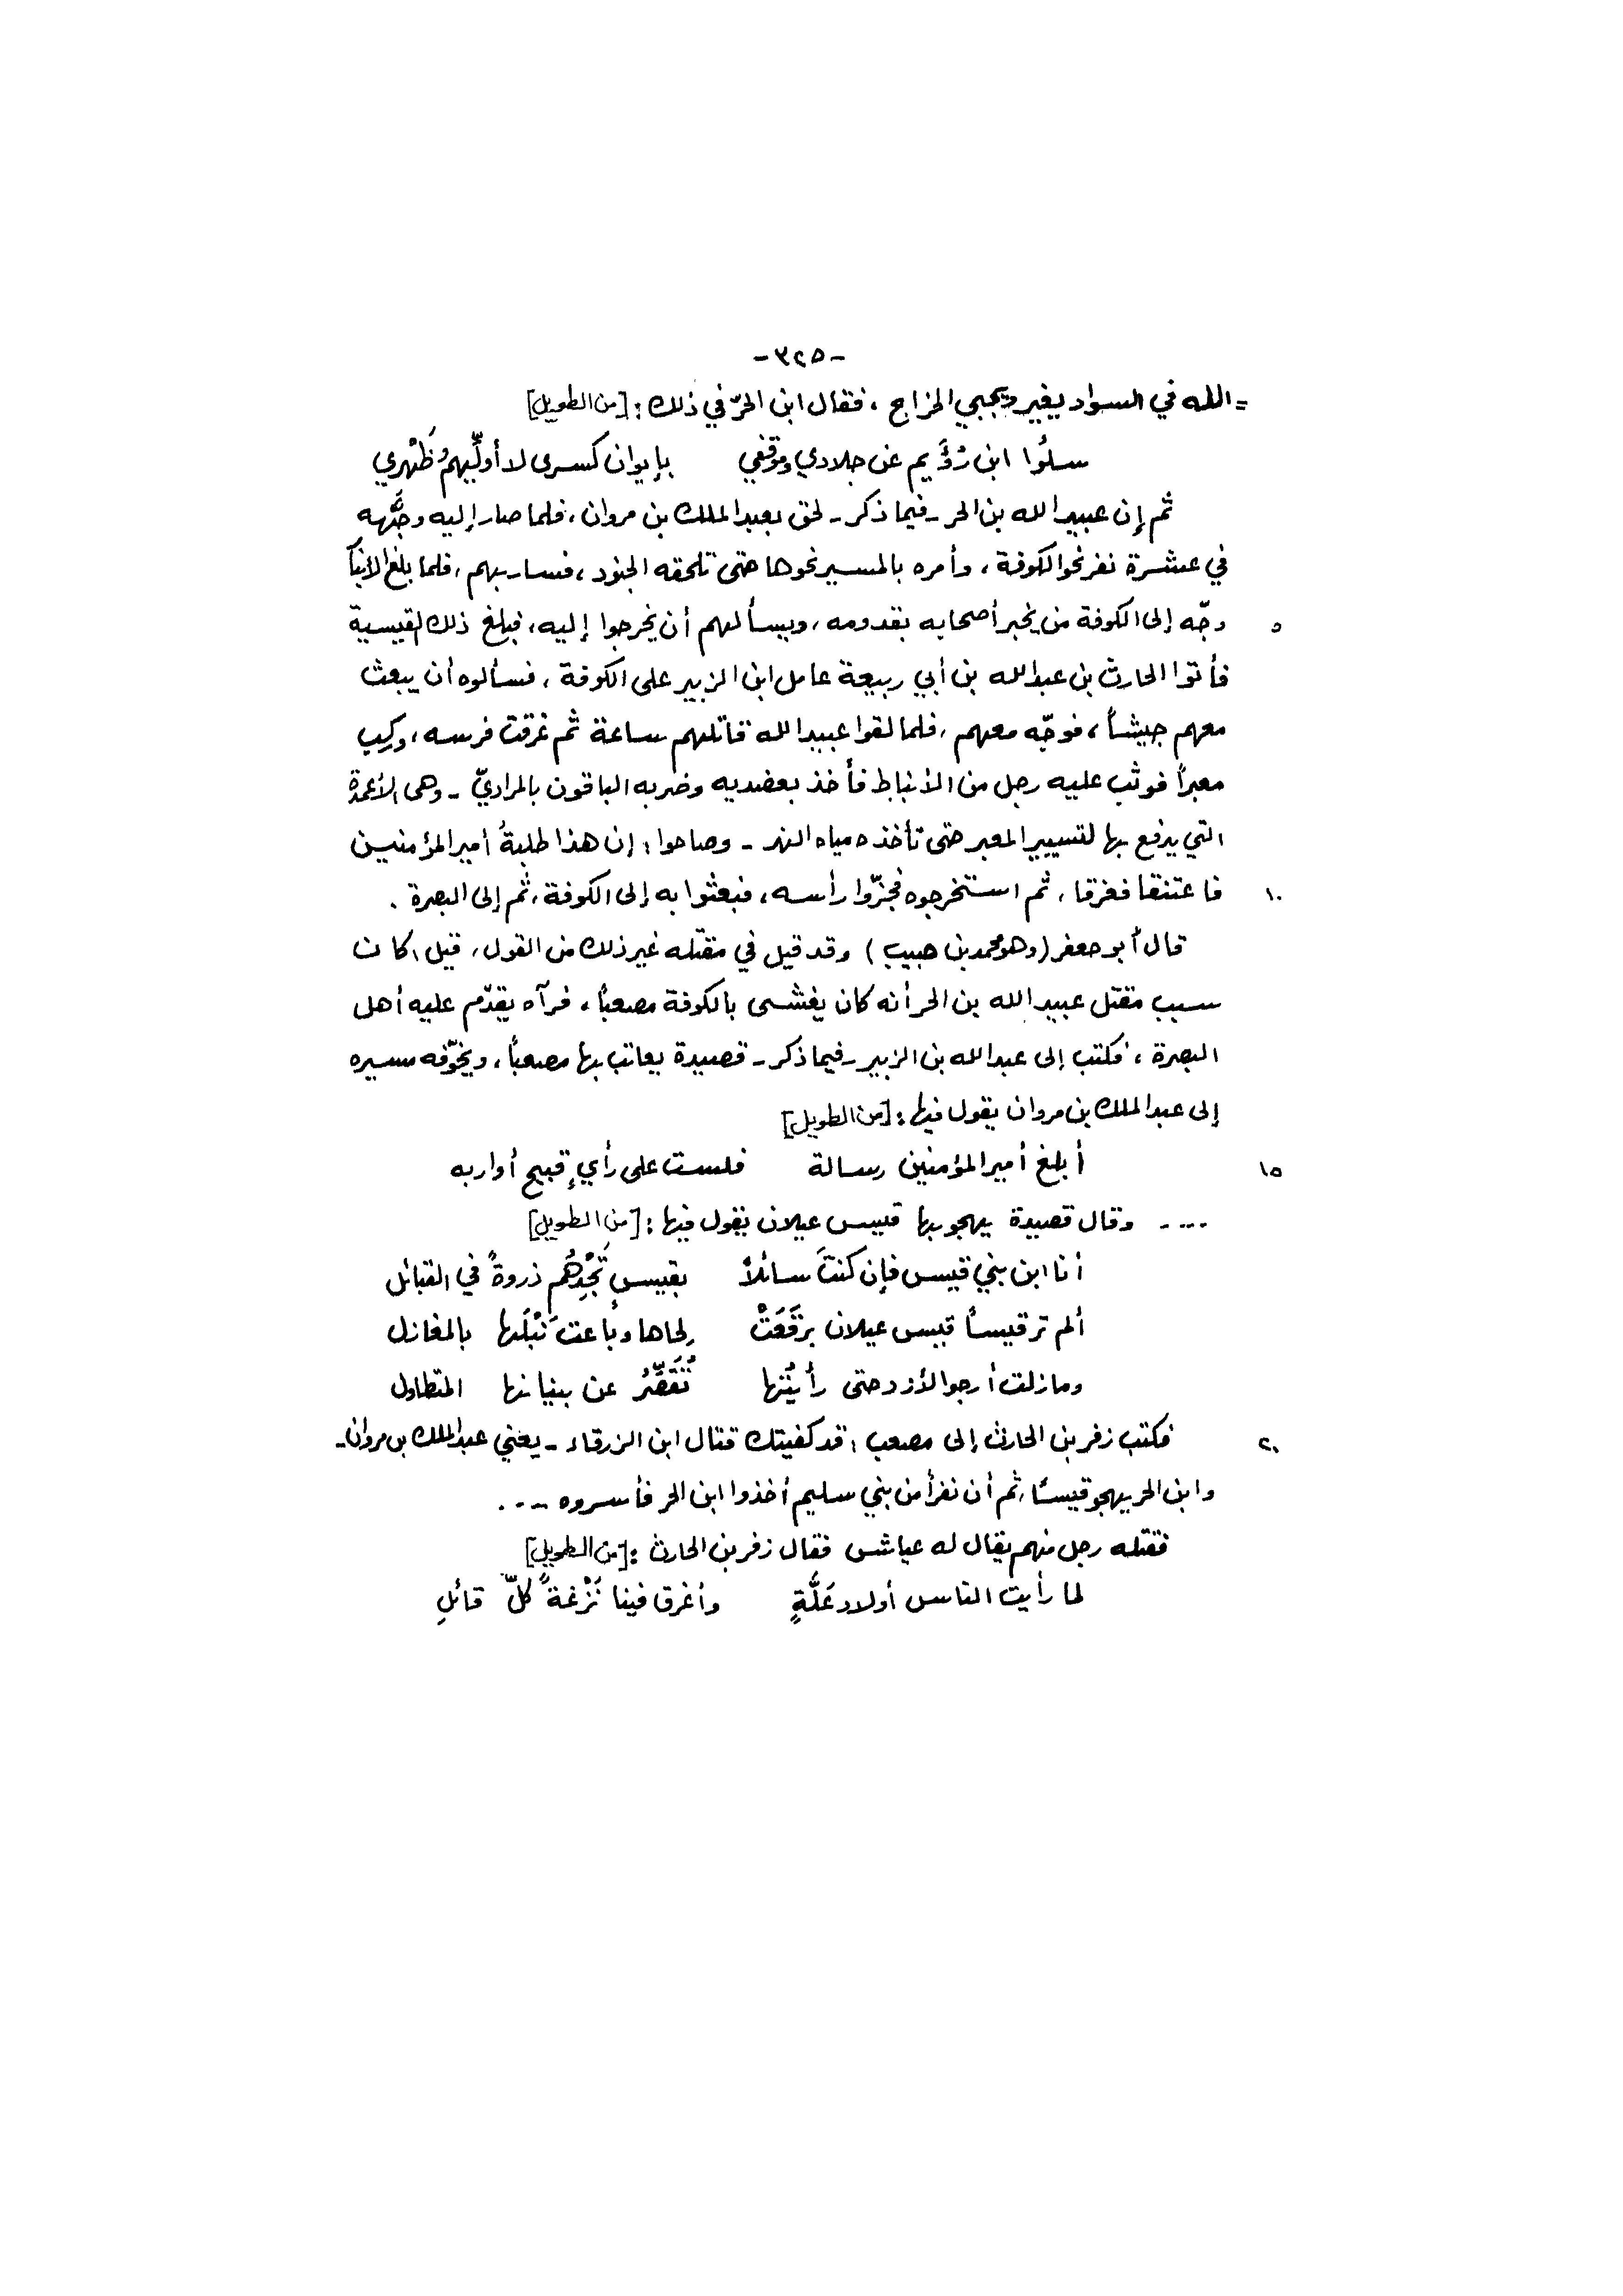 -٣٢٥-
= الله في السواد يغير ويجبي الخراج ، فقال ابن الحرّ في ذلك : [من الطويل]
سلُوا ابن رُؤَيم عن جلادي وموقفي بإيوان كسرى لا أولِّيهم ظَهْري
ثم إن عبيد الله بن الحر - فيما ذكر - لحق بعبد الملك بن مروان ، فلما صار إليه وجَّهه
في عشرة نفر نحو الكوفة ، وأمره بالمسير نحوها حتى تلحقه الجنود ، فسار بهم ، فلما بلغ الأنبار
٥ وجّه إلى الكوفة من يخبر أصحابه بقدومه ، ويسألهم أن يخرجوا إليه ، فبلغ ذلك القيسية
فأتوا الحارث بن عبد الله بن أبي ربيعة عامل ابن الزبير على الكوفة ، فسألوه أن يبعث
معهم جيشاً ، فوجّه معهم ، فلما لقوا عبيد الله قاتلهم ساعة ثم غرقت فرسه ، وركب
معبراً فوثب عليه رجل من الأنباط فأخذ بعضديه وضربه الباقون بالمراديّ - وهى الأعمدة
التي يدفع بها لتسيير المعبر حتى تأخذه مياه النهر - وصاحوا : إن هذا طلبةُ أمير المؤمنين
١٠ فاعتنقا فغرقا ، ثم استخرجوه فجزّوا رأسه ، فبعثوا به إلى الكوفة ، ثم إلى البصرة .
قال أبو جعفر (وهو محمد بن حبيب) وقد قيل في مقتله غير ذلك من القول ، قيل : كان
سبب مقتل عبيد الله بن الحر أنه كان يغشى بالكوفة مصعباً ، فرآه يقدّم عليه أهل
البصرة ، فكتب إلى عبد الله بن الزبير - فيما ذكر - قصيدة يعاتب بها مصعباً ، ويخوّفه مسيره
إلى عبد الملك بن مروان يقول فيها : [من الطويل]
١٥ أبلغ أمير المؤمنين رسالة فلست على رأيٍ قبيح أواربه
.... وقال قصيدة يهجو بها قيس عيلان يقول فيها : [من الطويل]
أنا ابن بني قيس فإن كنتَ سائلاً بقيسٍ تَجِدْهُم ذروةً في القبائل
ألم تر قيساً قيس عيلان برقَعَتْ لحاها وباعت نَبْلَها بالمغازل
وما زلت أرجو الأزد حتى رأيتُها تُقَصِّرُ عن بنيانها المتطاول
٢٠ فكتب زفر بن الحارث إلى مصعب : قد كفيتك قتال ابن الزرقاء - يعني عبد الملك بن مروان -
وابن الحر يهجو قيساً ، ثم أن نفراً من بني سليم أخذوا ابن الحر فأسروه ....
فقتله رجل منهم يقال له عياش فقال زفر بن الحارث : [من الطويل]
لما رأيت الناس أولاد عَلَّةٍ وأغرق فينا نَزْغةً كلّ قائلِ